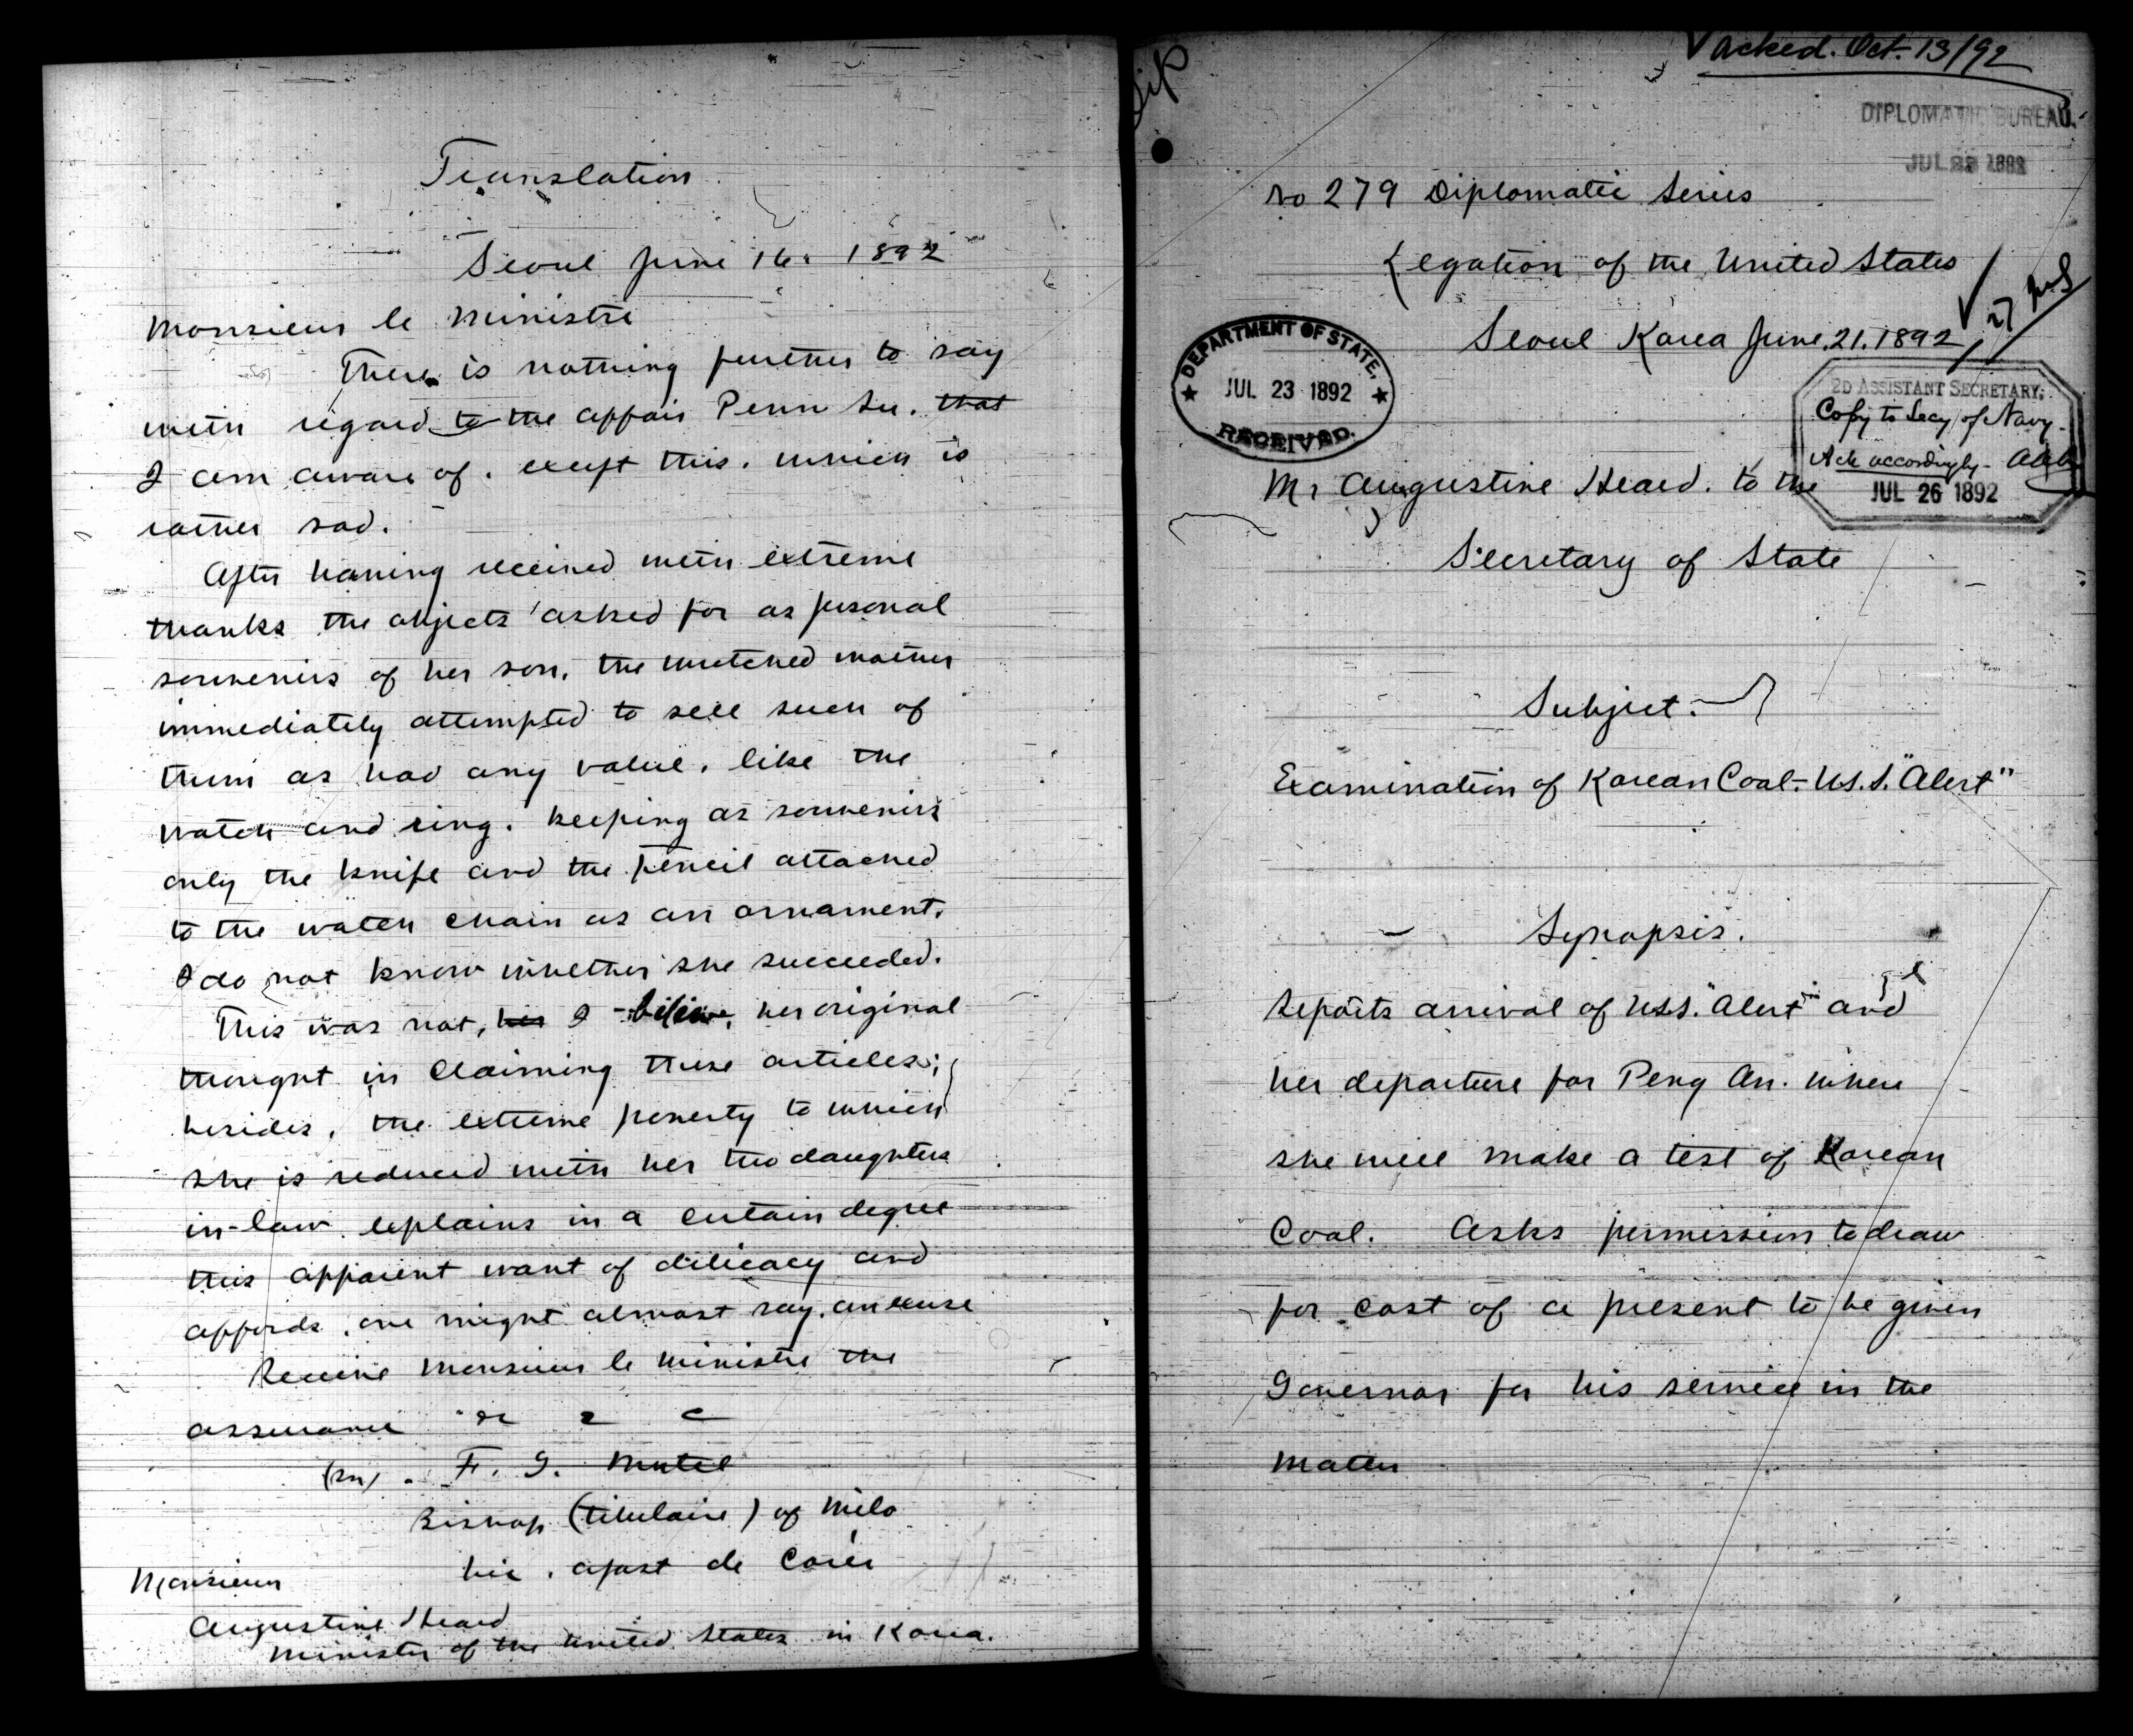 Translation
Seoul June 16. 1892
Monsieur le Ministre
There is nothing further to say
with regard to the affair Penn Su. that
I am aware of. except this. which is
rather sad.
After having received with extreme
thanks the objects asked for as personal
souvenirs of her son, the wretched mother
immediately attempted to sell such of
them as had any value, like the
watch and ring. keeping as souvenirs
only the knife and the pencil attached
to the watch chain as an ornament.
I do not know whether she succeeded.
This was not, her I believe, her original
thought in claiming these articles;
besides, the extreme poverty to which
she is reduced with her two daughters
in-law explains in a certain degree
this apparent want of delicacy and
affords, one might almost say, an excuse
Receive Monsieur le Ministre the
assurance &c & c
(Sn) . F. G. Mutel
Bishop (titulaire) of Milo
Vic. apost de Corée
Monsieur
Augustine Heard
Minister of the United States in Korea.
Acked. Oct. 13/92
DIPLOMATIC BUREAU.
JUL 23 1892
No 279 Diplomatic Series
Legation of the United States
Seoul Korea June, 21. 1892
27
DEPARTMENT OF STATE,
JUL 23 1892
RECEIVED.
2D ASSISTANT SECRETARY;
Copy to Secy of Navy.
Ack accordingly-
JUL 26 1892
Mr Augustine Heard. to the
Secretary of State
Subject:
Examination of Korean Coal.- U.S.S. "Alert"
Synopsis.
Reports arrival of U.S.S. "Alert" and
her departure for Peng An. where
she will make a test of Korean
Coal. Asks permission to draw
for cost of a present to be given
Governor for his service in the
matter